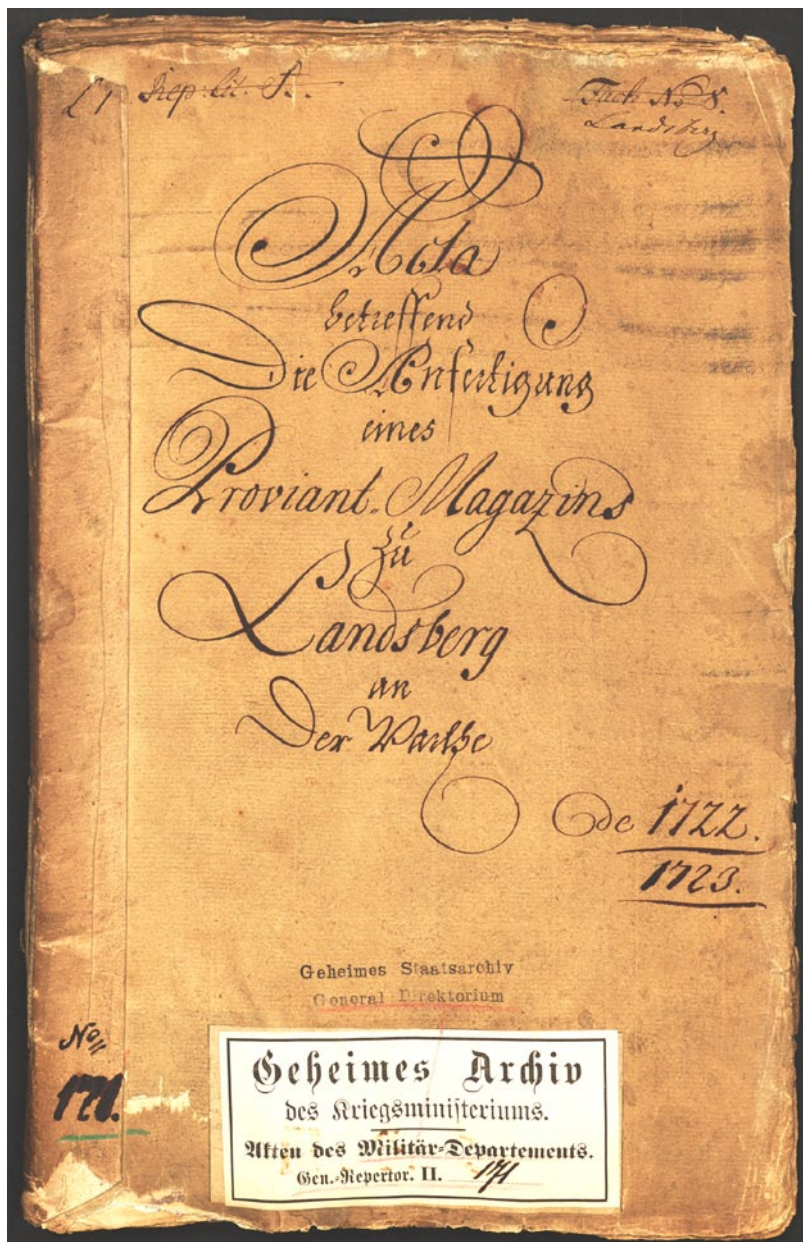 Rep: lit. A.
Fach No 8.
Landsberg
Acta
betreffend
Die Anfertigung
eines
Proviant-Magazins
zu
Landsberg
an
Der Warthe
de 1722.
1723.
Geheimes Staatsarchiv
General Direktorium
No
171.
Geheimes Archiv
des Kriegsministeriums.
Akten des Militär-Departements.
Gen.-Repertor. II. 171